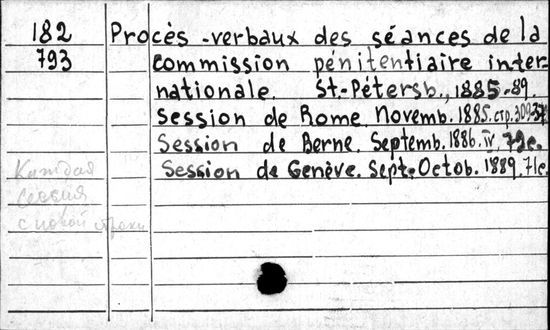 182 Procès-verbaux des séances de la
793 commission pénitentiaire inter-
nationale. St.-Pétersb., 1885-89.
Session de Rome, Novemb. 1885. стр. 309-
Session de Berne, Septemb. 1886. IV, 79c.
Session de Genève. Sept.-Octob. 1889. 71c.
Каждая
сессия
с новой строки